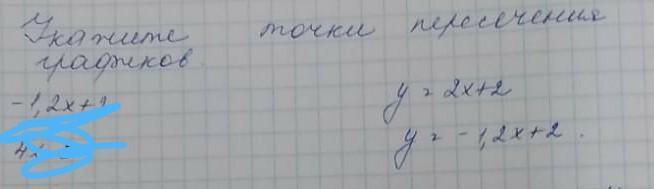 Укажите точки пересечения
графиков
-1,2x+2
y = 2x+2
y = -1,2x+2.